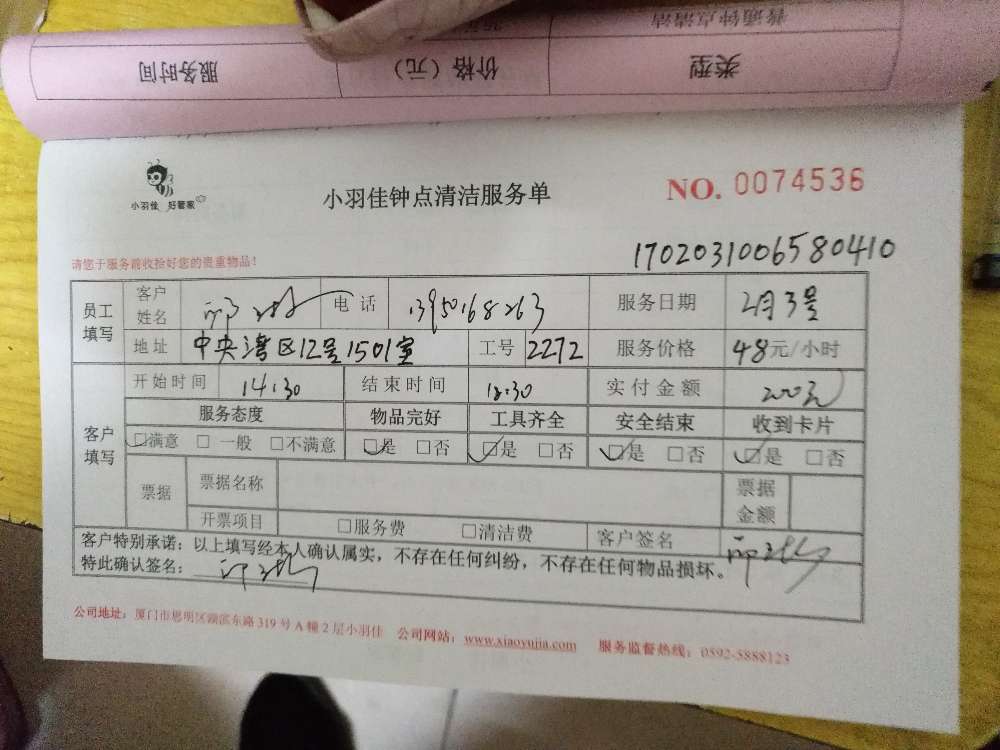 普通钟点清洁
类型 价格（元） 服务时间
小羽佳 好管家
小羽佳钟点清洁服务单
NO. 0074536
请您于服务前收拾好您的贵重物品！
1702031006580410
员工填写 客户姓名 电话 13950168263 服务日期 2月3号
地址 中央湾区12号1501室 工号 2272 服务价格 48元/小时
客户填写 开始时间 14:30 结束时间 18:30 实付金额 200元
服务态度 物品完好 工具齐全 安全结束 收到卡片
□满意 □一般 □不满意 □是 □否 □是 □否 □是 □否 □是 □否
票据 票据名称 票据金额
开票项目 □服务费 □清洁费 客户签名
客户特别承诺：以上填写经本人确认属实，不存在任何纠纷，不存在任何物品损坏。
特此确认签名：
公司地址：厦门市思明区湖滨东路319号A幢2层小羽佳 公司网站：www.xiaoyujia.com 服务监督热线：0592-5888123